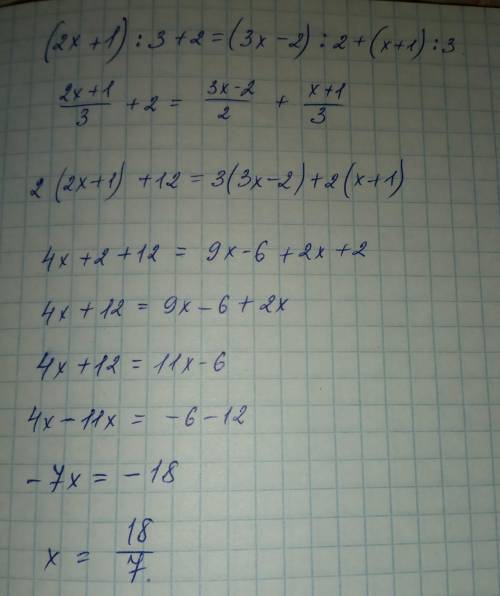 (2x+1):3+2=(3x-2):2+(x+1):3
2x+1/3 + 2 = 3x-2/2 + x+1/3
2(2x+1)+12=3(3x-2)+2(x+1)
4x+2+12=9x-6+2x+2
4x+12=9x-6+2x
4x+12=11x-6
4x-11x=-6-12
-7x=-18
x=18/7.